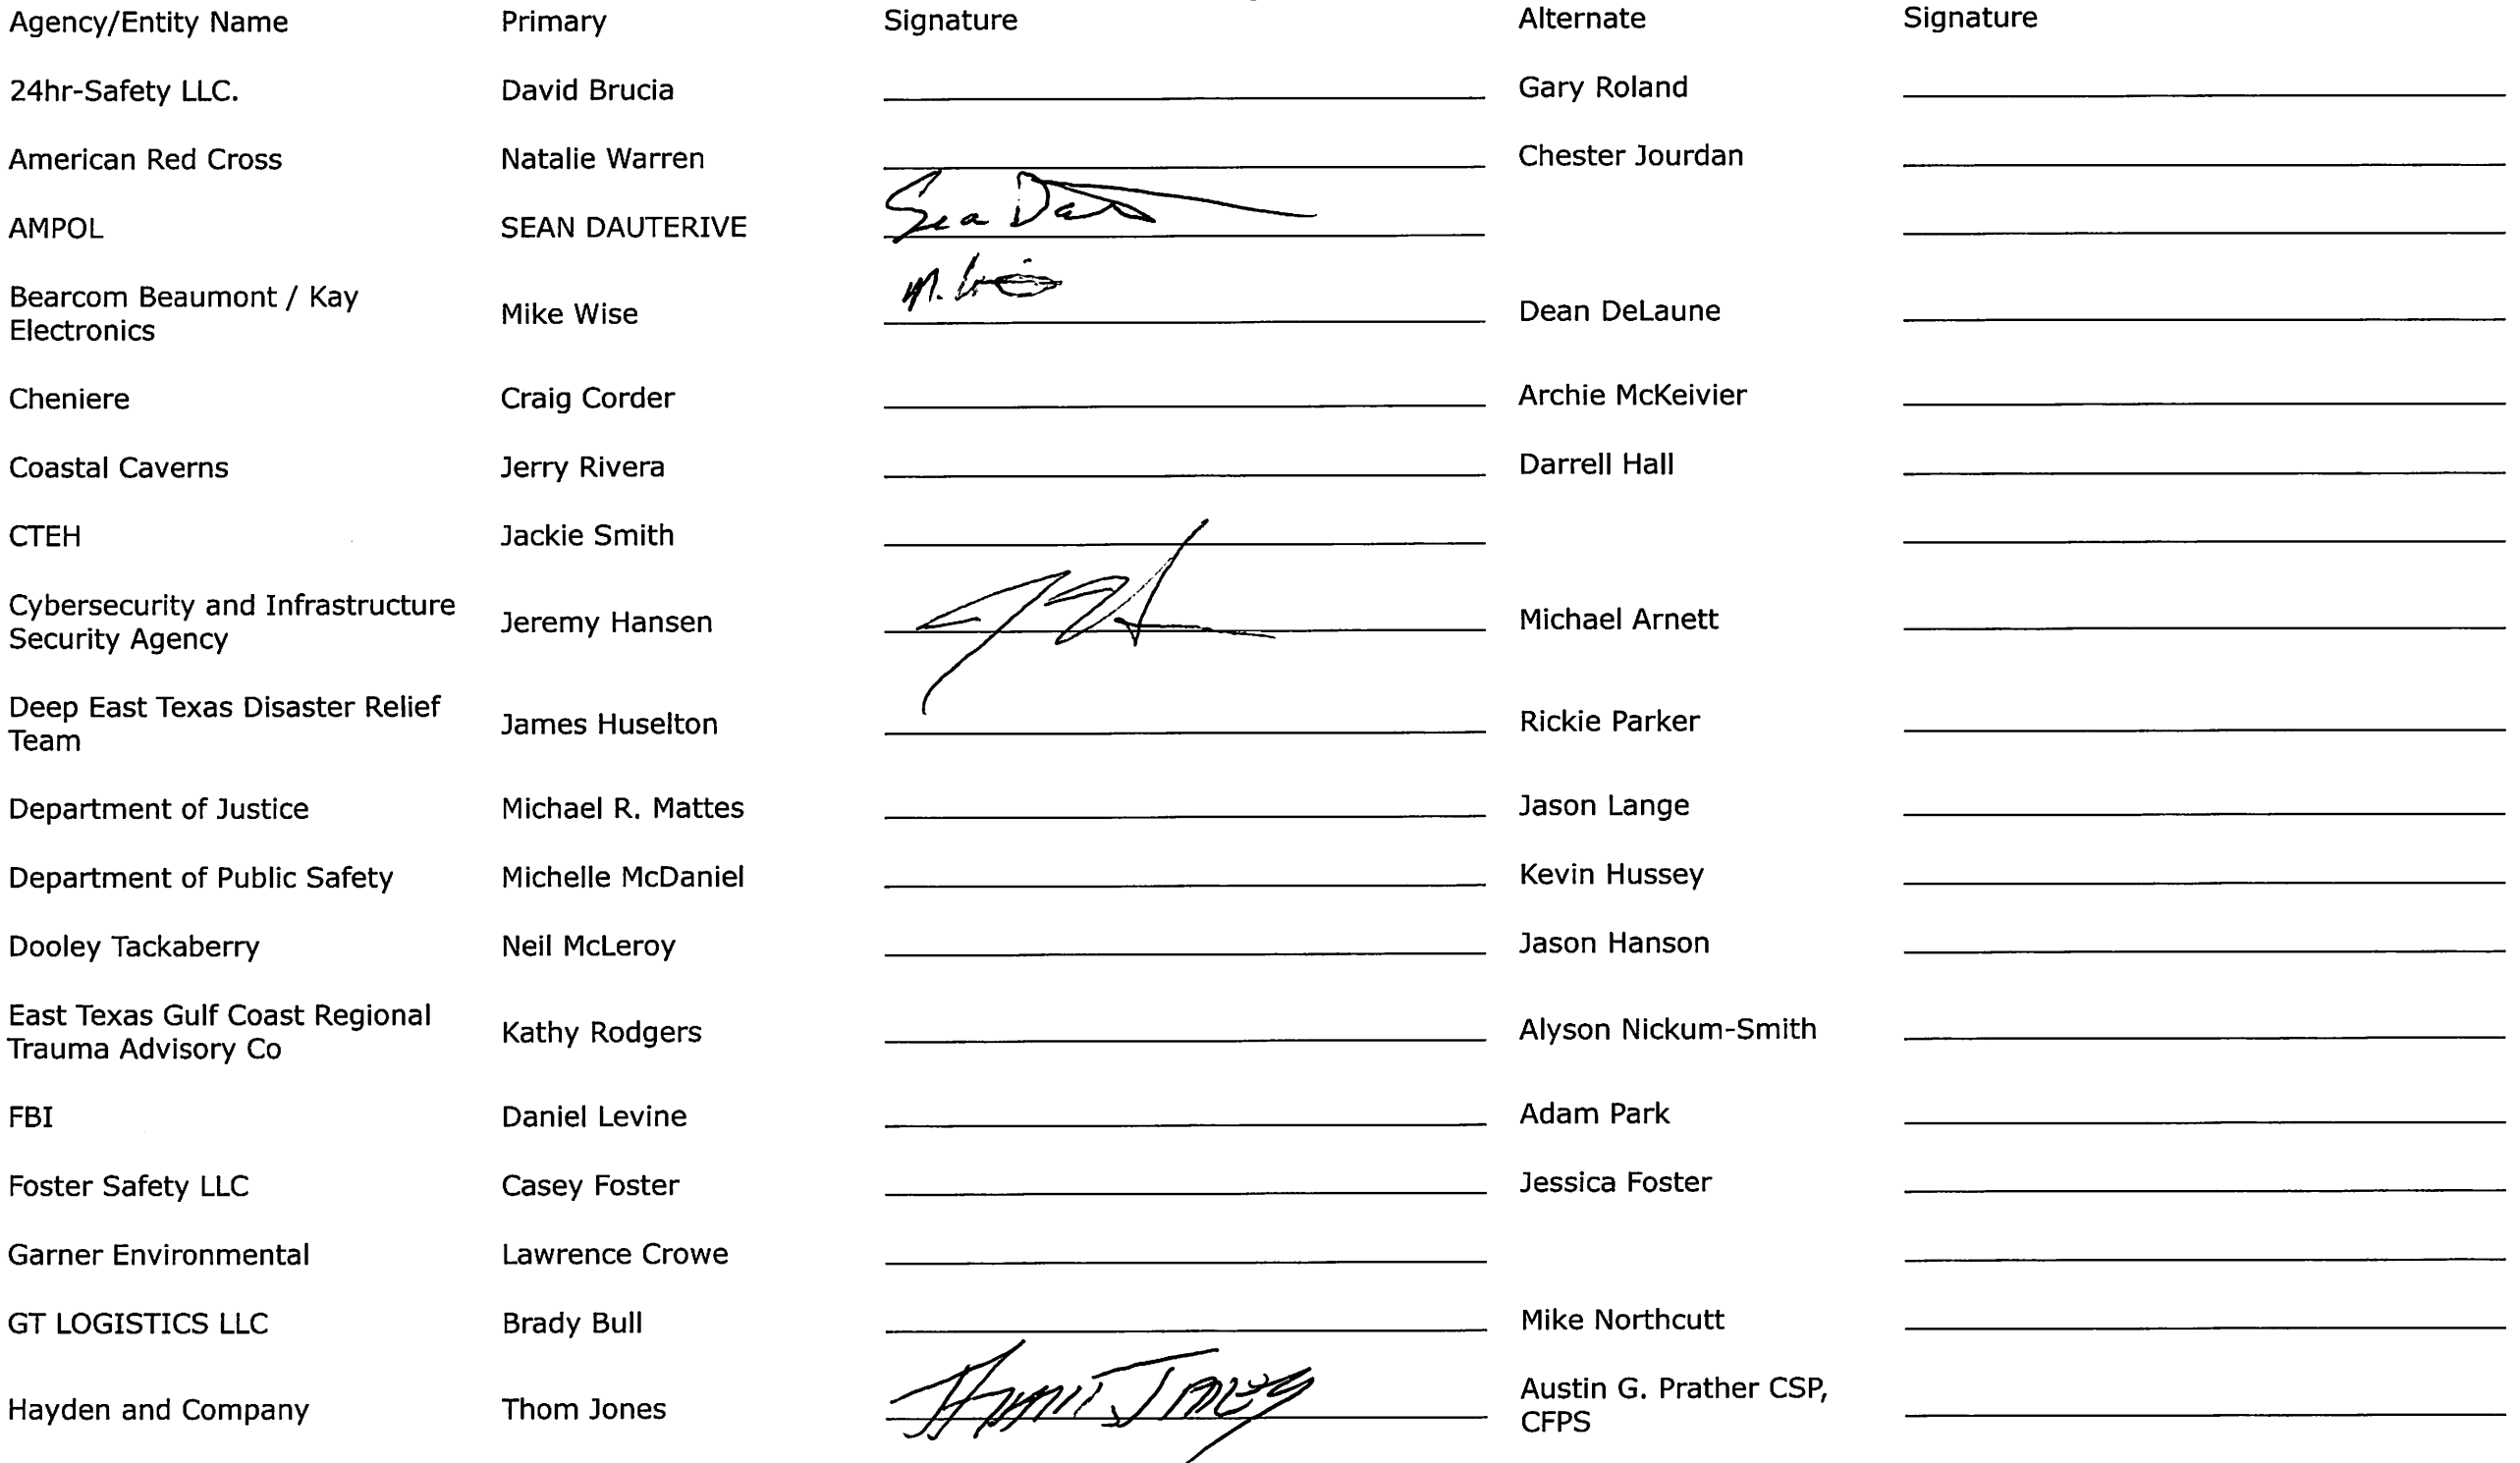 Agency/Entity Name Primary Signature Alternate Signature
24hr-Safety LLC. David Brucia Gary Roland
American Red Cross Natalie Warren Chester Jourdan
AMPOL SEAN DAUTERIVE
Bearcom Beaumont / Kay
Electronics Mike Wise Dean DeLaune
Cheniere Craig Corder Archie McKeivier
Coastal Caverns Jerry Rivera Darrell Hall
CTEH Jackie Smith
Cybersecurity and Infrastructure
Security Agency Jeremy Hansen Michael Arnett
Deep East Texas Disaster Relief
Team James Huselton Rickie Parker
Department of Justice Michael R. Mattes Jason Lange
Department of Public Safety Michelle McDaniel Kevin Hussey
Dooley Tackaberry Neil McLeroy Jason Hanson
East Texas Gulf Coast Regional
Trauma Advisory Co Kathy Rodgers Alyson Nickum-Smith
FBI Daniel Levine Adam Park
Foster Safety LLC Casey Foster Jessica Foster
Garner Environmental Lawrence Crowe
GT LOGISTICS LLC Brady Bull Mike Northcutt
Hayden and Company Thom Jones Austin G. Prather CSP,
CFPS